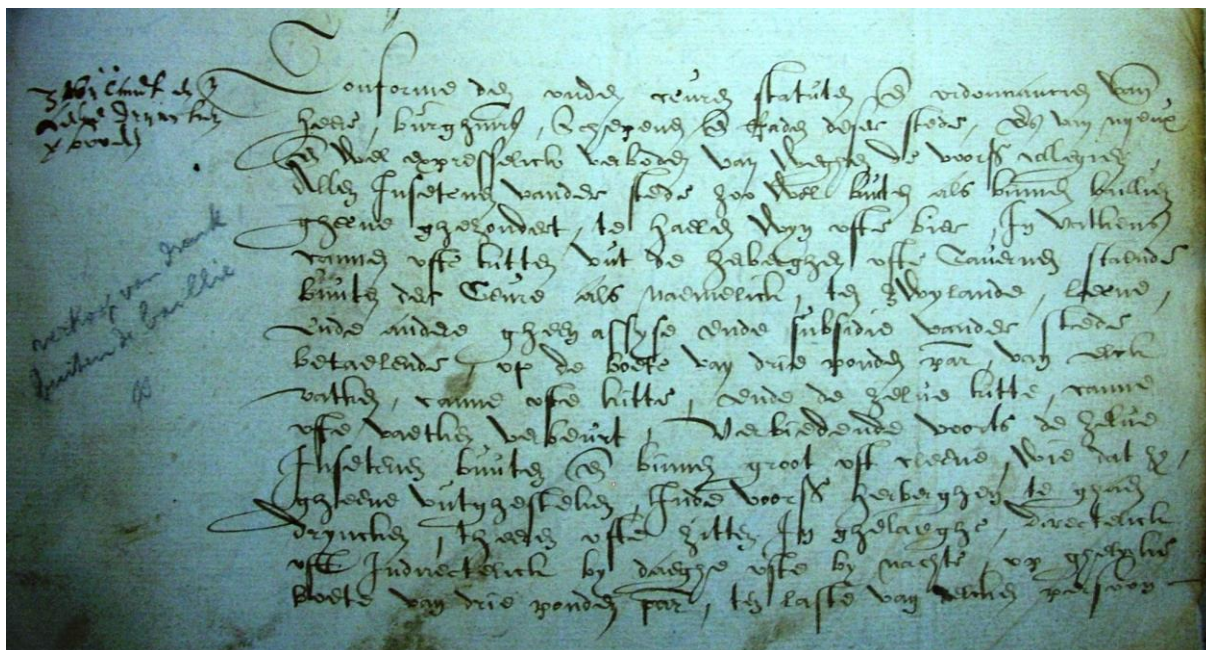 Conforme den ouden ceuren statuten en ordonnancien van
heere, burghmrs, Schepenen en Raden deser stede, Es van nyeux
en wel expresselick verboden van weghen de voors collegien
Allen Insetenen vander stede zoo wel buten als binnen baillien
gheene ghezondert, te haelen wyn ofte bier, In vatkens
cannen ofte kitten uut de herberghen ofte Tavernen staende
buuten der Ceure als namelick, ten zwylande, leene,
ende andere gheen assyse ende subsidie vander stede
betaelende, up de boete van drie ponden par, van elck
vatken, canne ofte kitte, ende de zelve kitte, canne
ofte vaetken verbeurt, Verbiedende voorts de zelve
Insetenen buuten en binnen groot oft cleene, wie dat zy,
gheene uutghesteken, Inde voors herberghen te ghaen
dryncken, theeren ofte zitten In ghelaeghe, directelick
oft Indirectelick by daeghe ofte by nachte, up ghelycke
boete van drie ponden par, ten laste van elcken persoon
verkoop van drank
buiten de baillie